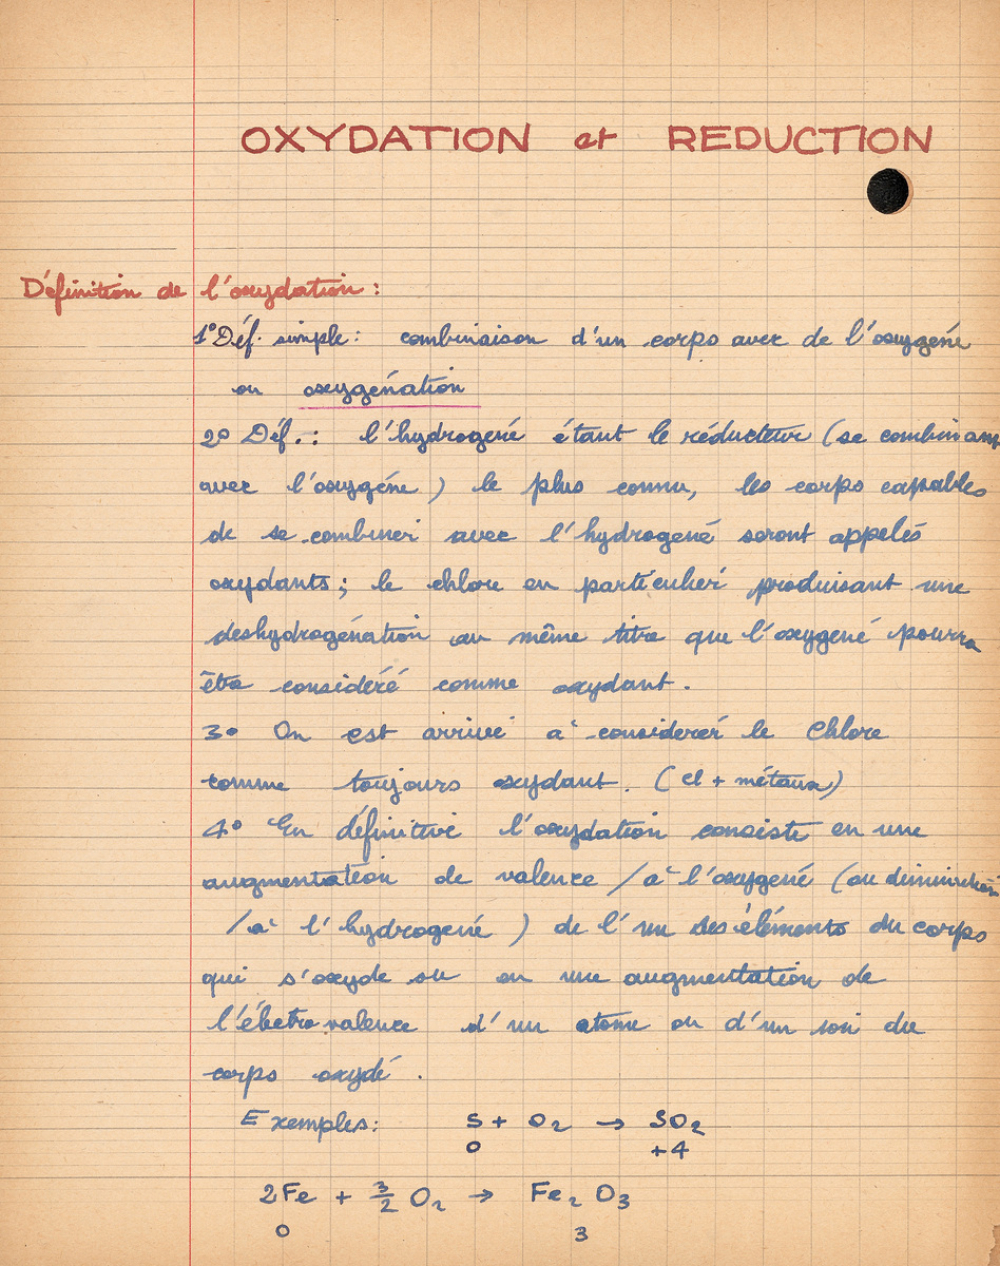 OXYDATION et REDUCTION
Définition de l'oxydation :
1° Déf. simple : combinaison d'un corps avec de l'oxygéné
ou oxygénation
2° Déf. : l'hydrogené étant le réducteur (se combinant
avec l'oxygéne) le plus connu, les corps capables
de se combiner avec l'hydrogené seront appelés
oxydants ; le chlore en particulier produisant une
deshydrogénation au même titre que l'oxygené pourra
être consideré comme oxydant.
3° On est arrivé à considerer le Chlore
comme toujours oxydant. (Cl + métaux)
4° En définitive l'oxydation consiste en une
augmentation de valence / à l'oxygené (ou diminution
/ à l'hydrogené) de l'un des éléments du corps
qui s'oxyde ou en une augmentation de
l'électrovalence d'un atome ou d'un ion du
corps oxydé.
Exemples : S + O₂ → SO₂
0 +4
2Fe + 3/2 O₂ → Fe₂ O₃
0 3